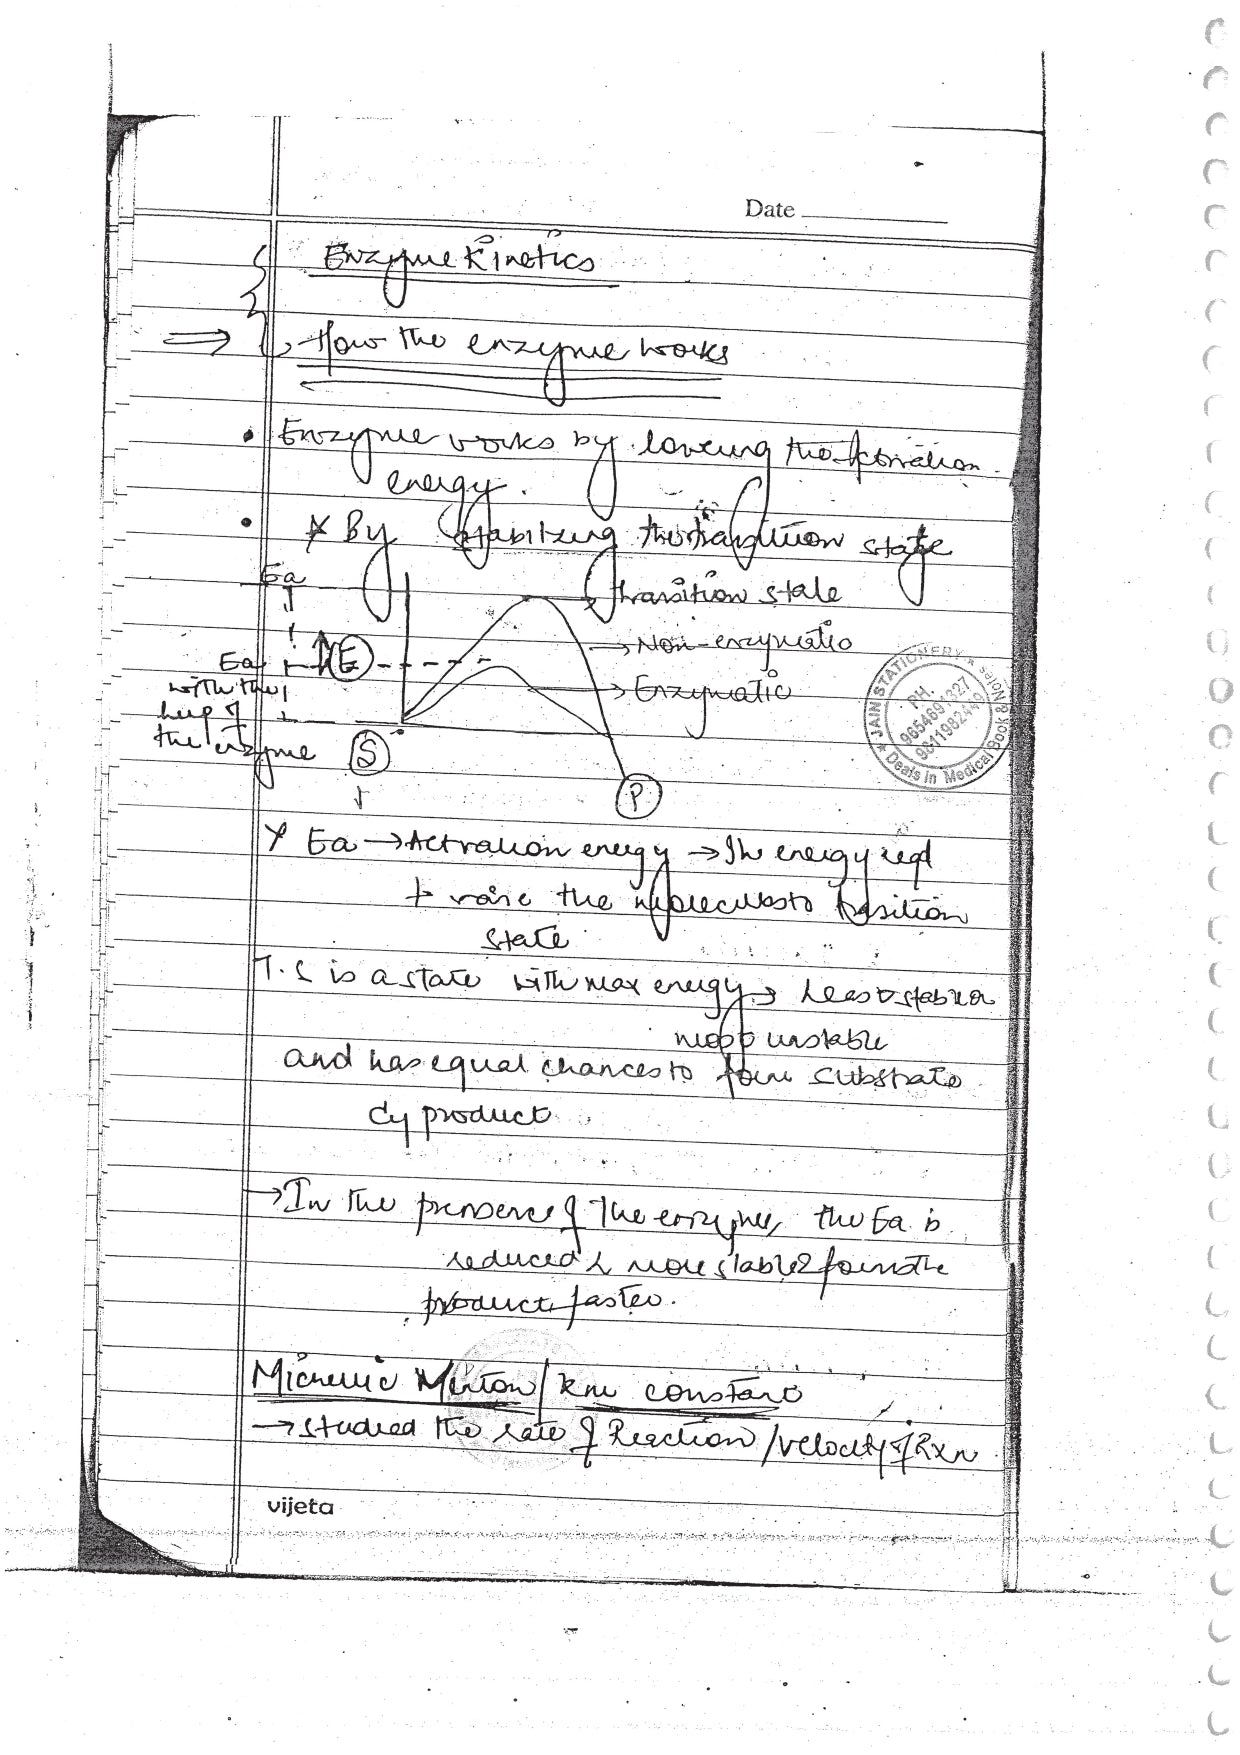 Date
Enzyme Kinetics
How the enzyme works
Enzyme works by lowering the Activation
energy.
* By stabilizing the transition state
Ea
transition state
Non-enzymatic
Ea
E
Enzymatic
with the
help of
the enzyme
S
P
JAIN STATIONERY
PH.
Deals in Medical Book & Notes
Ea → Activation energy → The energy reqd
to raise the molecules to transition
state
T.S is a state with max energy →
unstable
and has equal chances to form substrate
or product
→ In the presence of the enzyme, the Ea is
reduced & more stable & forms the
product faster.
/ km constant
→ studied the rate of Reaction / velocity of Rxn
vijeta